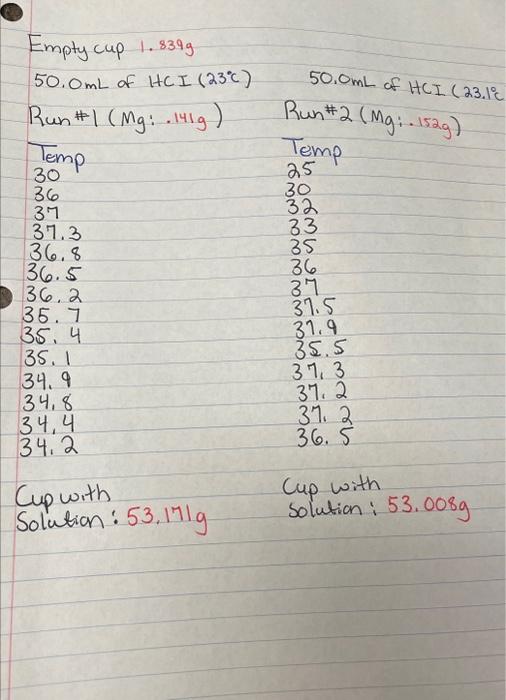 Empty cup 1.839g
50.0mL of HCI (23°C)
50.0mL of HCI (23.1°C
Run#1 (Mg: .141g)
Run#2 (Mg: .152g)
Temp
30
36
37
37.3
36.8
36.5
36.2
35.7
35.4
35.1
34.9
34.8
34.4
34.2
Temp
25
30
32
33
35
36
37
37.5
37.9
35.5
37.3
37.2
37.2
36.5
Cup with
Solution: 53.171g
Cup with
Solution: 53.008g